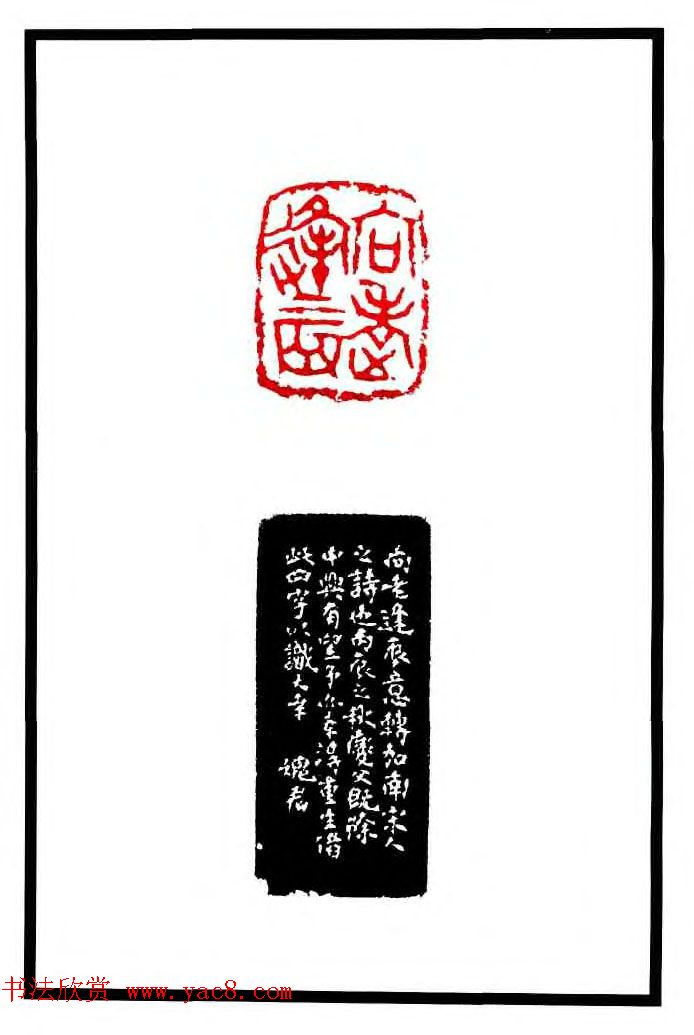 向老逢辰
向老逢辰意轉加南宋人
之詩也丙辰之秋慶父既除
中興有望予亦幸得重生借
此四字以識大幸 槐君
书法欣赏 www.yac8.com